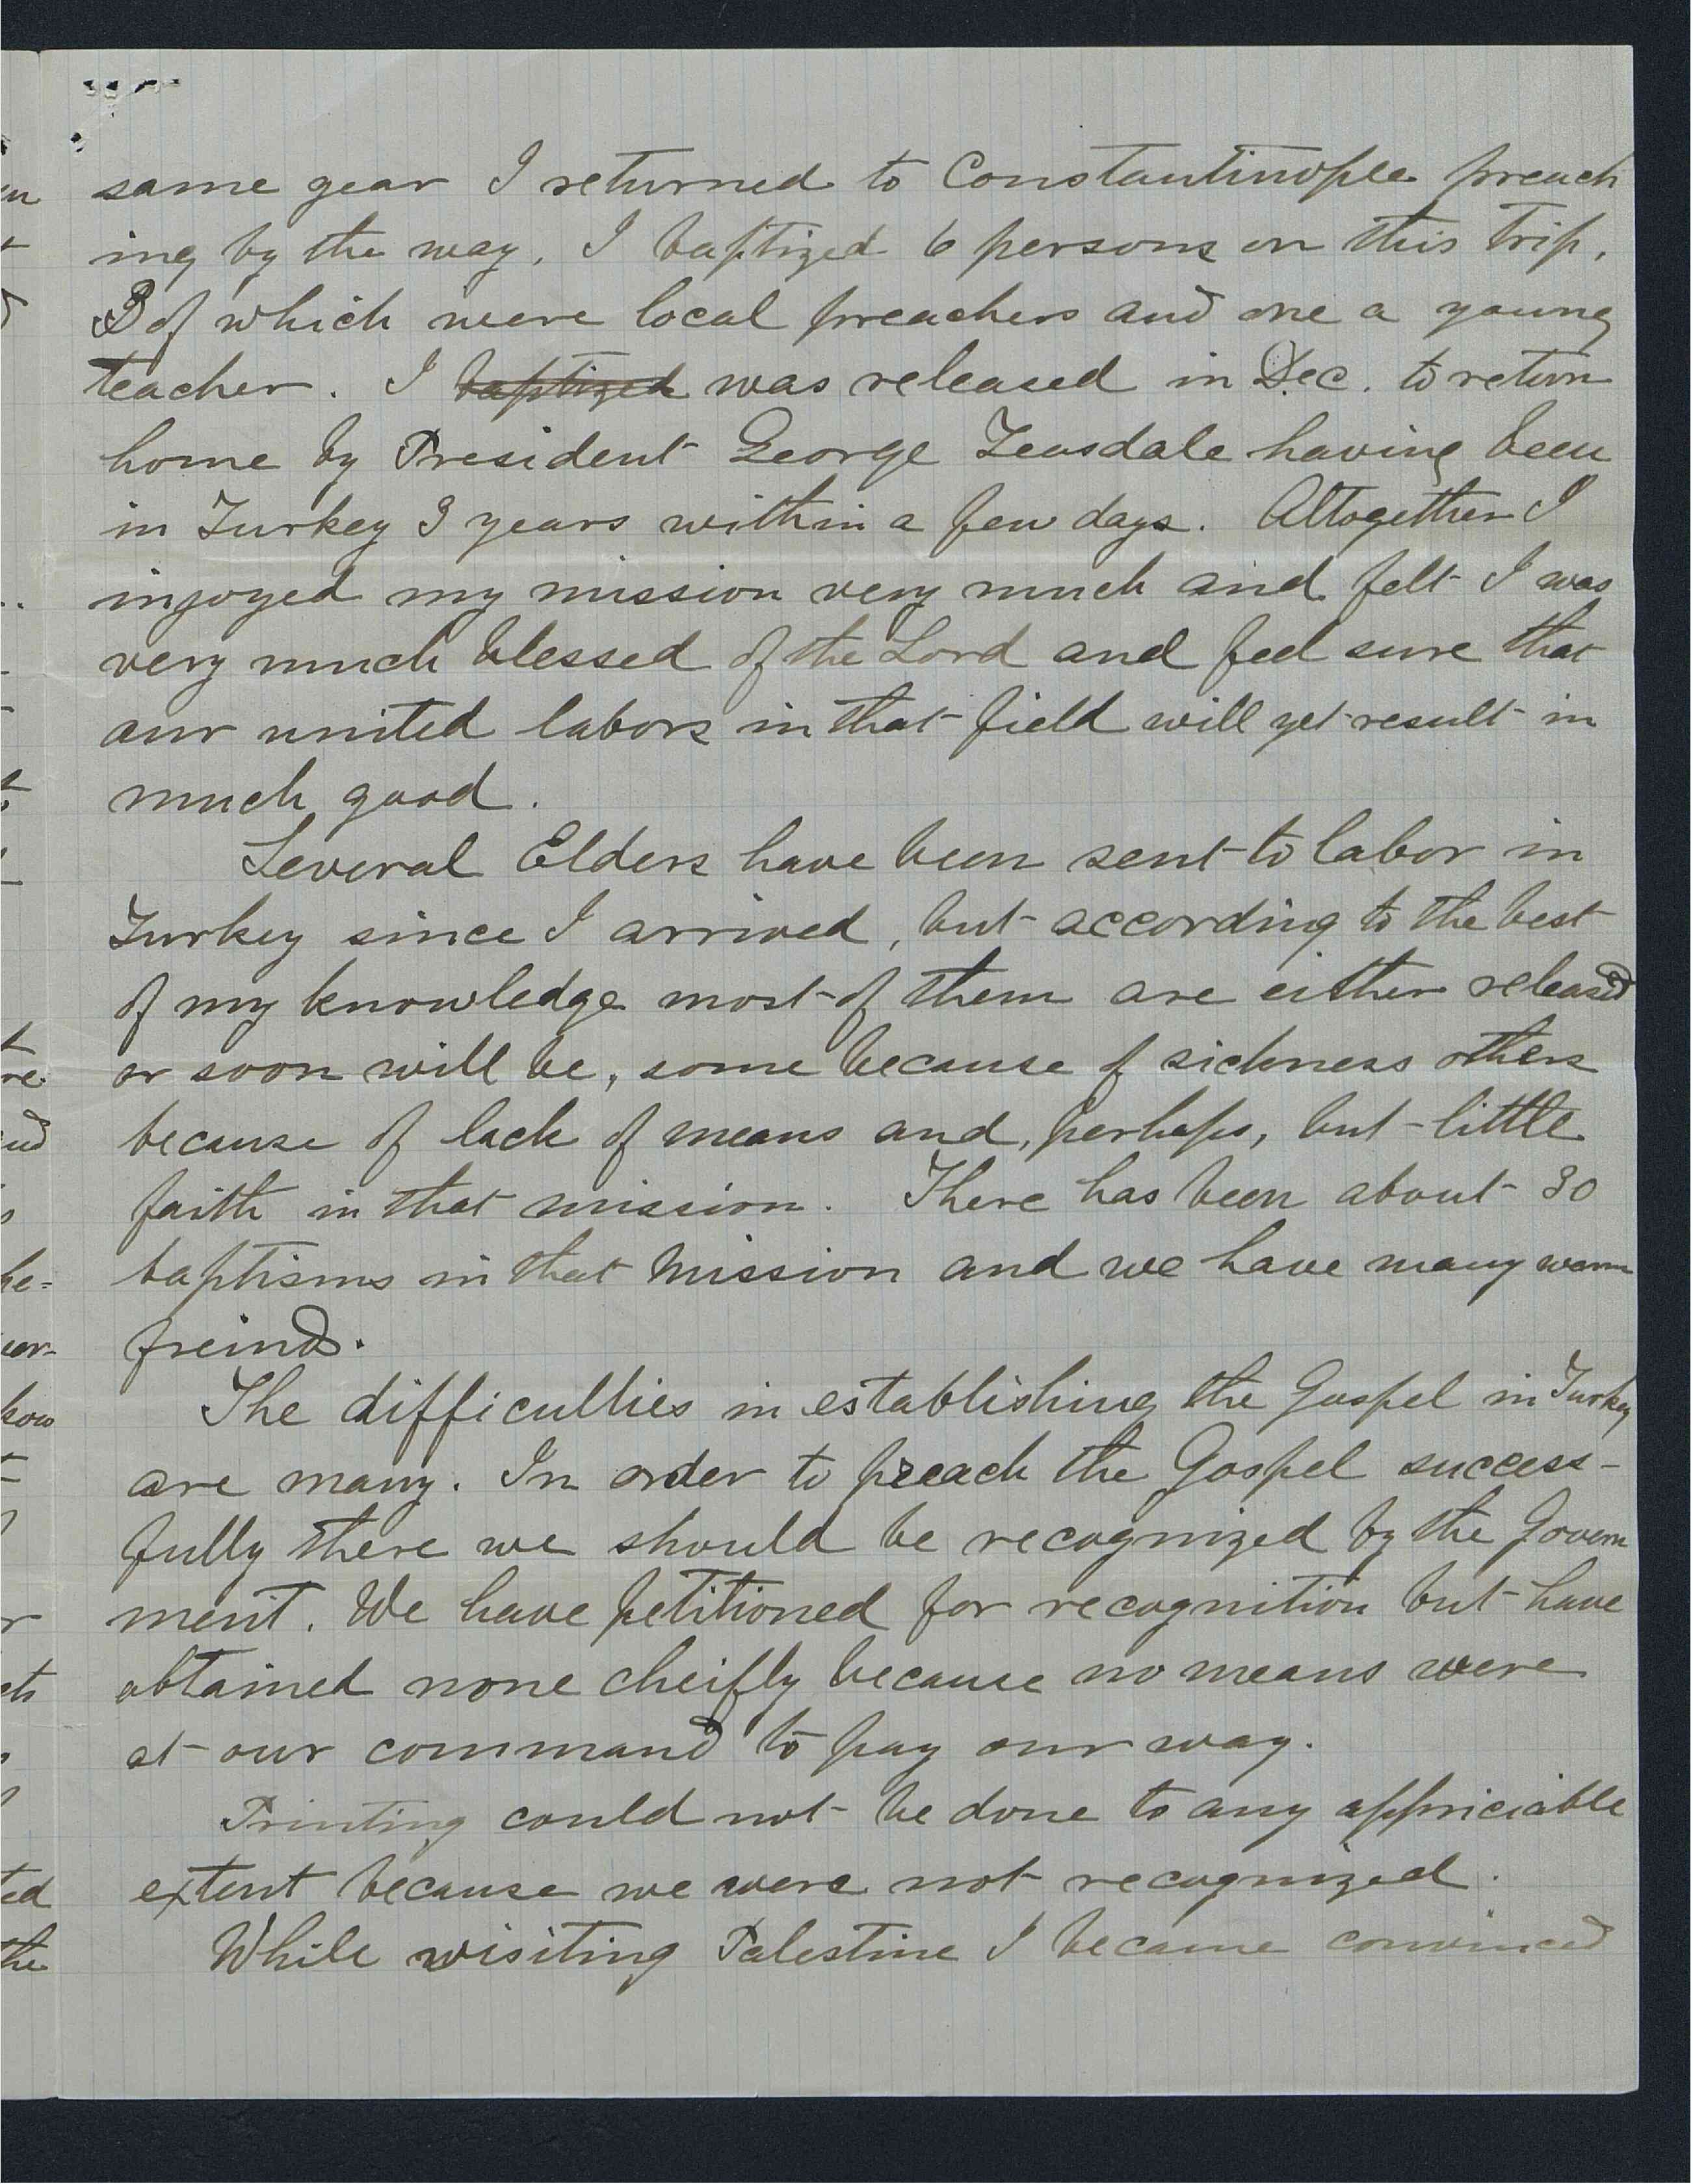 same year I returned to Constantinople preach
ing by the way. I baptized 6 persons on this trip,
3 of which were local preachers and one a young
teacher. I baptized was released in Dec. to return
home by President George Teasdale having been
in Turkey 3 years within a few days. Altogether I
injoyed my mission very much and felt I was
very much blessed of the Lord and feel sure that
our united labors in that field will yet result in
much good.
Several Elders have been sent to labor in
Turkey since I arrived, but according to the best
of my knowledge most of them are either released
or soon will be, some because of sickness others
because of lack of means and, perhaps, but little
faith in that mission. There has been about 30
baptisms in that Mission and we have many warm
freinds.
The difficulties in establishing the Gospel in Turkey
are many. In order to preach the Gospel success-
fully there we should be recognized by the Govern
ment. We have petitioned for recognition but have
obtained none cheifly because no means were
at our command to pay our way.
Printing could not be done to any appriciable
extent because we were not recognized.
While visiting Palestine I became convinced